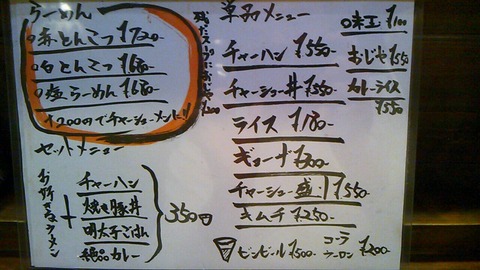 らーめん
○赤とんこつ ¥720-
○白とんこつ ¥680-
○塩らーめん ¥680-
+200円でチャーシューメンに!!
残ったスープにおじや ¥200
セットメニュー
お好きなラーメン
+
チャーハン
焼き豚丼
明太子ごはん
絶品カレー
350円
単品メニュー
チャーハン ¥550-
チャーシュー丼 ¥550-
ライス ¥180-
ギョーザ ¥200-
チャーシュー盛り ¥550-
キムチ ¥250-
ビンビール ¥500-
コーラ
ウーロン
¥200-
○味玉 ¥100
おじや ¥550
カレーライス
¥550-